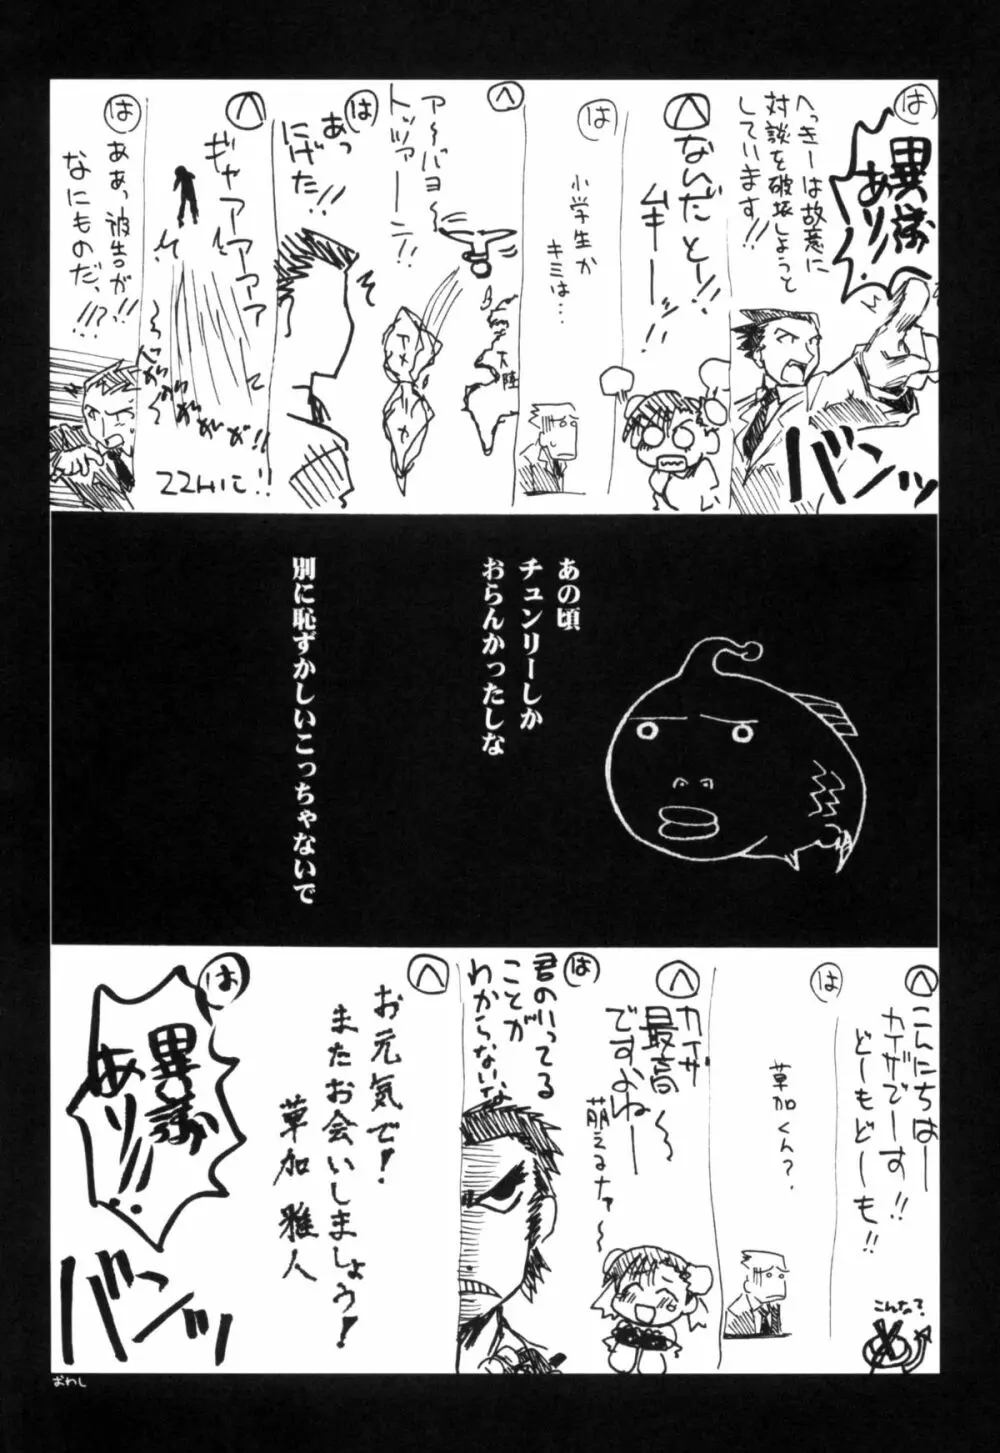 は
異議
あり!!
へっきーは故意に
対談を破壊しようと
しています!!
バンッ
へ
なんだとー!!
ムキーー!!
は
小学生か
キミは…
へ
ア〜バヨ〜
トッツァーーン!!
大陸
アメリカ
は
あっ
にげた!!
へ
ギャアアアアア
ZZHに!!
は
ああっ被告が
なにものだ、!!?!!
あの頃
チュンリーしか
おらんかったしな
別に恥ずかしいこっちゃないで
へ
こんにちはー
カイザでーす!!
どーもどーも!!
こんなで?
は
草加くん?
へ
カイザ
最高〜
ですよねー
萌えるナァ〜
は
君のいってる
ことが
わからないな
へ
お元気で!
またお会いしましょう!
草加 雅人
は
異議
あり!!
バンッ
おわし